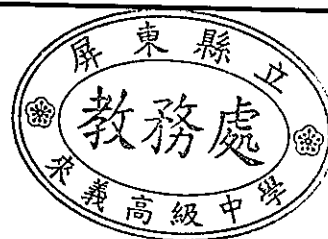 屏東縣立
教務處
來義高級中學